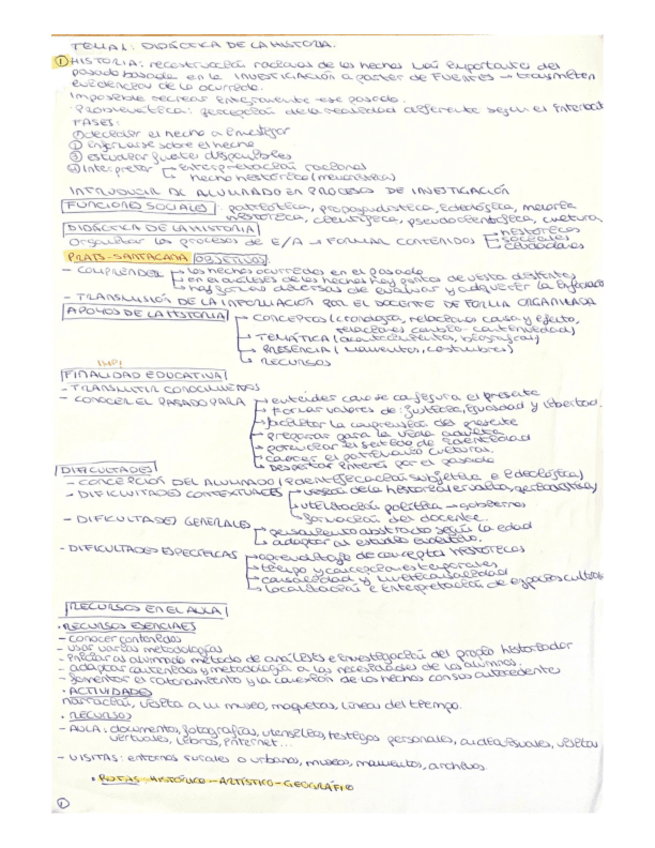 TEMA 1: DIDÁCTICA DE LA HISTORIA.
① HISTORIA: reconstrucción racional de los hechos más importantes del
pasado basada en la INVESTIGACIÓN a partir de FUENTES → transmiten
evidencias de lo ocurrido.
Imposible recrear íntegramente ese pasado.
Problemática: percepción de la realidad diferente según el
FASES:
① decidir el hecho a investigar
② informarse sobre el hecho
③ estudiar fuentes disponibles
④ Interpretar → interpretación racional
→ hecho histórico (memorístico)
INTRODUCIR AL ALUMNADO EN PROCESOS DE INVESTIGACIÓN
FUNCIONES SOCIALES: patriótica, propagandística, ideológica, memoria
histórica, científica, pseudocientífica, cultura.
DIDÁCTICA DE LA HISTORIA
Organizar los procesos de E/A → FORMAR CONTENIDOS → históricos
→ sociales
→ ciudadanos
PRATS-SANTACANA OBJETIVOS:
- COMPRENDER → los hechos ocurridos en el pasado
→ en el análisis de los hechos hay puntos de vista distintos
→ hay formas diversas de evaluar y adquirir la
- TRANSMISIÓN DE LA INFORMACIÓN POR EL DOCENTE DE FORMA ORGANIZADA
APOYOS DE LA HISTORIA → CONCEPTOS (cronología, relaciones causa y efecto,
relaciones cambio-continuidad)
→ TEMÁTICA (acontecimientos, biografías)
→ PRESENCIA (monumentos, costumbres)
→ RECURSOS
IMP!
FINALIDAD EDUCATIVA
- TRANSMITIR CONOCIMIENTOS
- CONOCER EL PASADO PARA → entender como se configura el presente
→ formar valores de: justicia, igualdad y libertad.
→ facilitar la comprensión del presente
→ preparar para la vida adulta
→ potenciar el sentido de identidad
→ conocer el patrimonio cultural.
→ Despertar interés por el pasado
DIFICULTADES
- CONCEPCIÓN DEL ALUMNADO (identificación subjetiva e ideológica)
- DIFICULTADES CONTEXTUALES → visión de la historia
→ utilización política → gobiernos
→ formación del docente.
- DIFICULTADES GENERALES → pensamiento abstracto según la edad
→ adaptar al estadio evolutivo.
- DIFICULTADES ESPECÍFICAS → aprendizaje de conceptos históricos
→ tiempo y concepciones temporales
→ causalidad y multicausalidad
→ localización e interpretación de espacios
RECURSOS EN EL AULA
· RECURSOS ESENCIALES
- conocer contenidos
- usar varias metodologías
- iniciar al alumnado método de análisis e investigación del propio historiador
- adaptar contenidos y metodología a las necesidades de los alumnos.
- fomentar el razonamiento y la conexión de los hechos con sus antecedentes
· ACTIVIDADES
narración, visita a un museo, maquetas, líneas del tiempo.
· RECURSOS
- AULA: documentos, fotografías, utensilios, testigos personales, audiovisuales, visitas
virtuales, libros, internet...
- VISITAS: entornos rurales o urbanos, museos, monumentos, archivos.
· RUTAS HISTÓRICO-ARTÍSTICO-GEOGRÁFICO
①